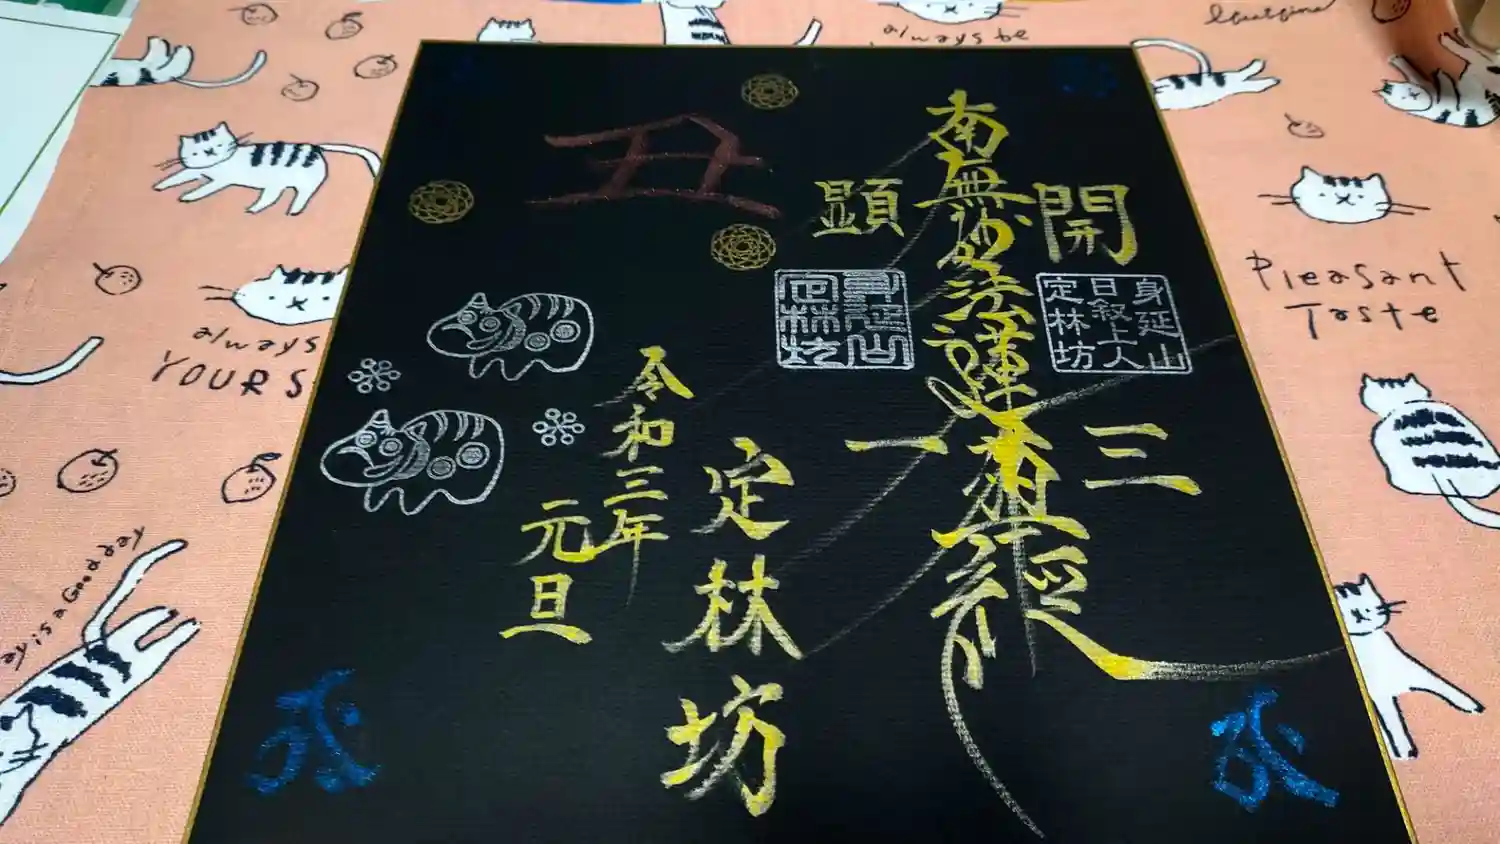 開
三
身延山
日叙上人
定林坊
南無妙法蓮華経
顕
一
身延山
定林坊
定林坊
令和三年
元旦
丑
always be
always
YOURS
Pleasant
Taste
ay is a Good day